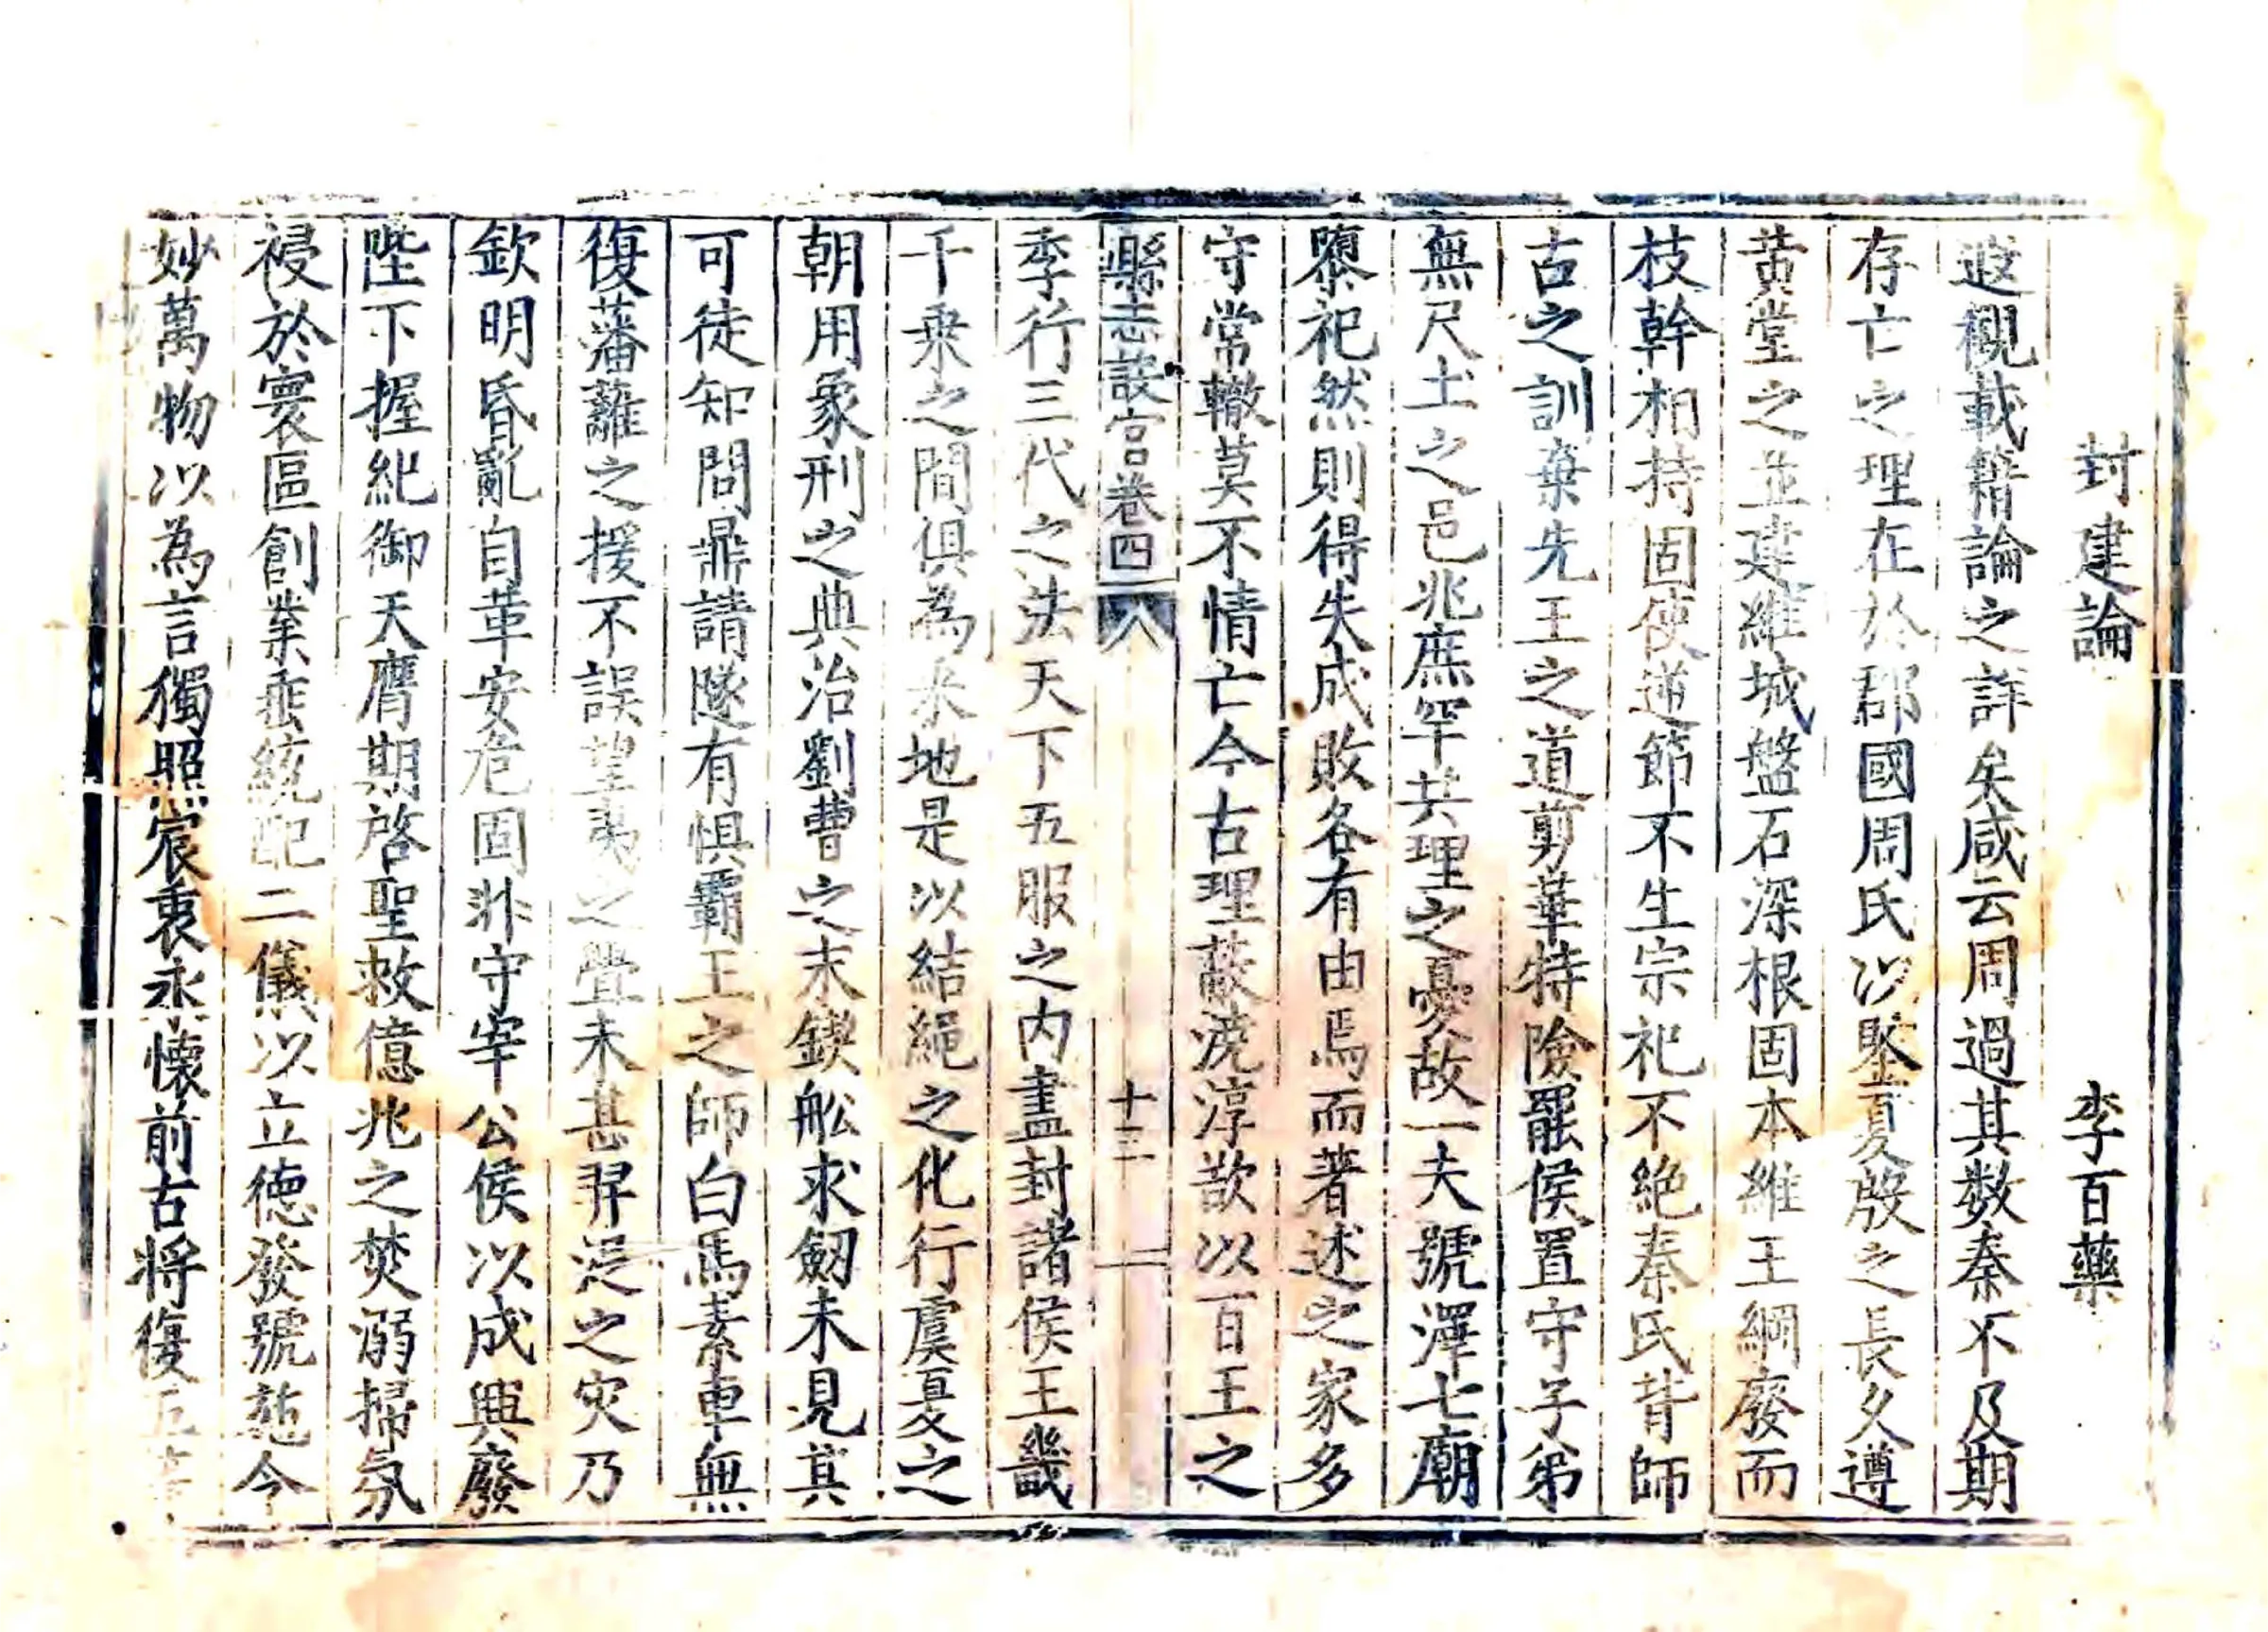 封建論　李百藥
遐覌載籍論之詳矣咸云周過其数秦不及期
存亡之理在於郡國周氏以堅夏殷之長久遵
黄堂之並建維城盤石深根固本維王綱廢而
枝幹相持固使逆節不生宗祀不絶秦氏背師
古之訓棄先王之道剪華特險罷侯置守子弟
無尺土之邑兆庶罕共理之憂故一夫號澤七廟
隳祀然則得失成敗各有由焉而著述之家多
守常轍莫不情亡今古理蔽澆淳欲以百王之
縣志設官卷四　八　十三
季行三代之法天下五服之内盡封諸侯王畿
千乗之間俱為采地是以結繩之化行虞夏之
朝用象刑之典治劉曹之末鍥舩求劒未見其
可徒知問鼎請隧有惧霸王之師白馬素車無
復藩蘺之援不誤望夷之舋未甚羿浞之灾乃
欽明昏亂自革安危固非守宰公侯以成興廢
陛下握紀御天膺期啓聖救億兆之焚溺掃氛
祲於寰區創業垂統配二儀以立德發號施令
妙萬物以為言獨照宸衷永懷前古将復五等